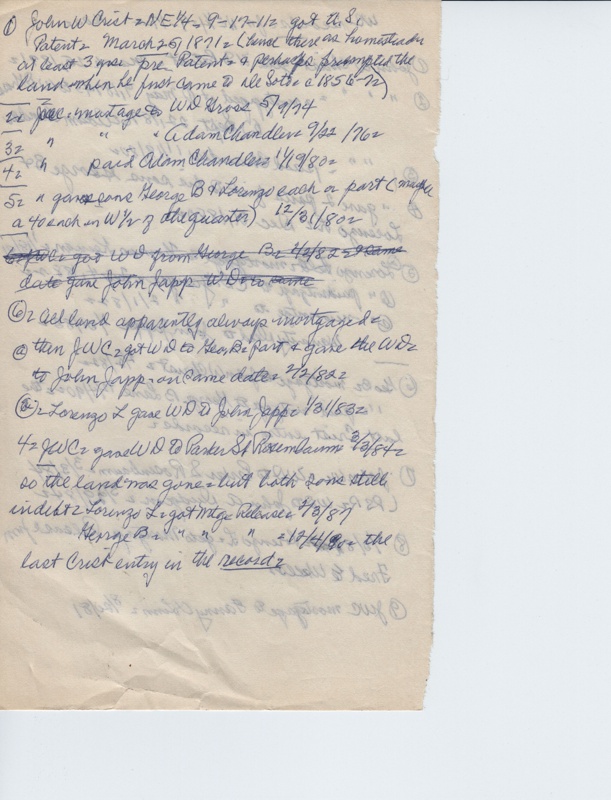 ① John W Crist = NE 1/4 = 9-17-11 = got the S
Patent = March 25/1871 = (lived there as homesteader
at least 3 yrs pre Patent = & perhaps preempted the
land when he first came to De Soto = 1856-7)
2 = JWC = mortgage to WD Gross 5/9/74
3 = " " " Adam Chandler = 9/22/76 =
4 = " paid Adam Chandlers 1/19/80 =
5 = " gave sons George B & Lorenzo each a part (maybe
a 40 each in W 1/2 of the quarter) 12/31/80 =
JWC = got WD from George B = 2/2/82 = & same
date gave John Japp WD to same
⑥ = All land apparently always mortgaged =
ⓐ then JWC = got WD to Geo B = part & gave the WD =
to John Japp = on same date = 2/2/82 =
ⓑ = Lorenzo L gave WD to John Japp = 1/31/83 =
4 = JWC = gave WD to Parker S Rosenbaum 3/3/84 =
so the land was gone = but both sons still
in debt = Lorenzo L = got Mtg = Release = 2/3/87
George B = " " " = 12/4/90 = the
last Crist entry in the record =